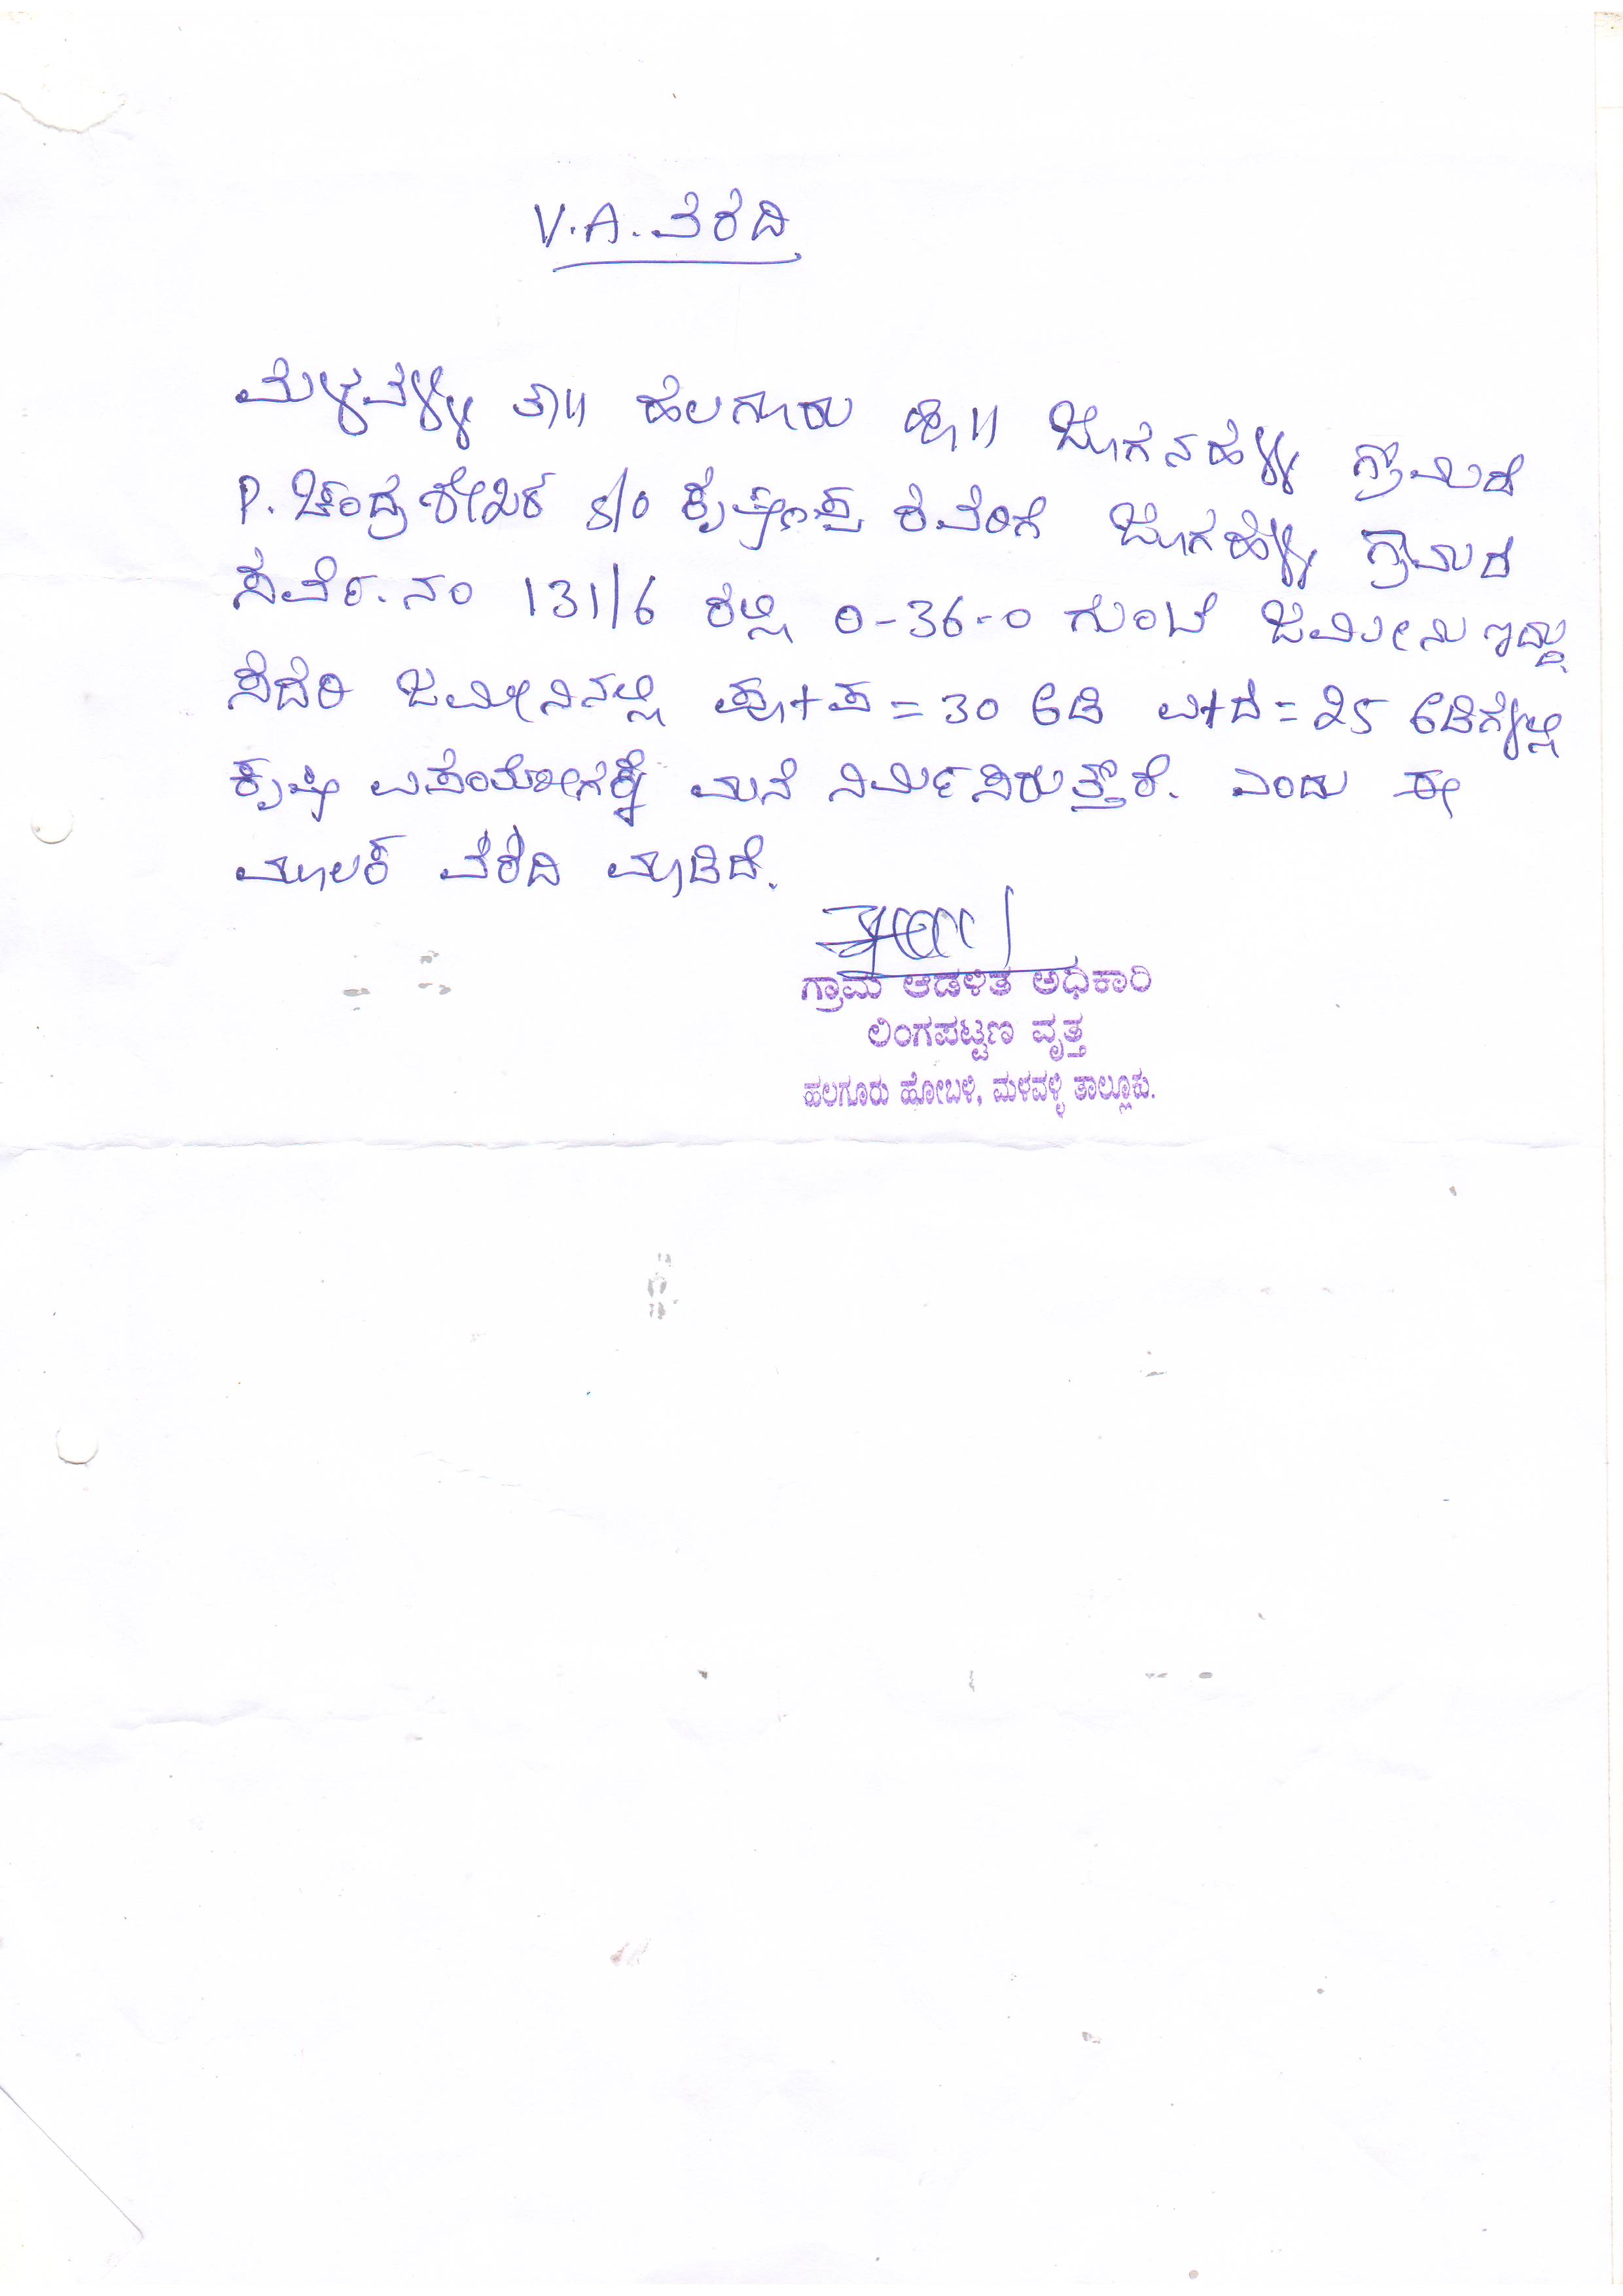 V.A. ವರದಿ
ಮಳವಳ್ಳಿ ತಾ॥ ಹಲಗೂರು ಹೋ॥ ಜೋಗನಹಳ್ಳಿ ಗ್ರಾಮದ
P. ಚಂದ್ರಶೇಖರ s/o ಕೃಷ್ಣಪ್ಪ ರವರಿಗೆ ಜೋಗಹಳ್ಳಿ ಗ್ರಾಮದ
ಸರ್ವೆ.ನಂ 131/6 ರಲ್ಲಿ 0-36-0 ಗುಂಟೆ ಜಮೀನು ಇದ್ದು
ಸದರಿ ಜಮೀನಿನಲ್ಲಿ ಪೂ+ಪ = 30 ಅಡಿ ಉ+ದ = 25 ಅಡಿಗಳಲ್ಲಿ
ಕೃಷಿ ಉಪಯೋಗಕ್ಕೆ ಮನೆ ನಿರ್ಮಿಸಿರುತ್ತಾರೆ. ಎಂದು ಈ
ಮೂಲಕ ವರದಿ ಮಾಡಿದೆ.
ಗ್ರಾಮ ಆಡಳಿತ ಅಧಿಕಾರಿ
ಲಿಂಗಪಟ್ಟಣ ವೃತ್ತ
ಹಲಗೂರು ಹೋಬಳಿ, ಮಳವಳ್ಳಿ ತಾಲ್ಲೂಕು.